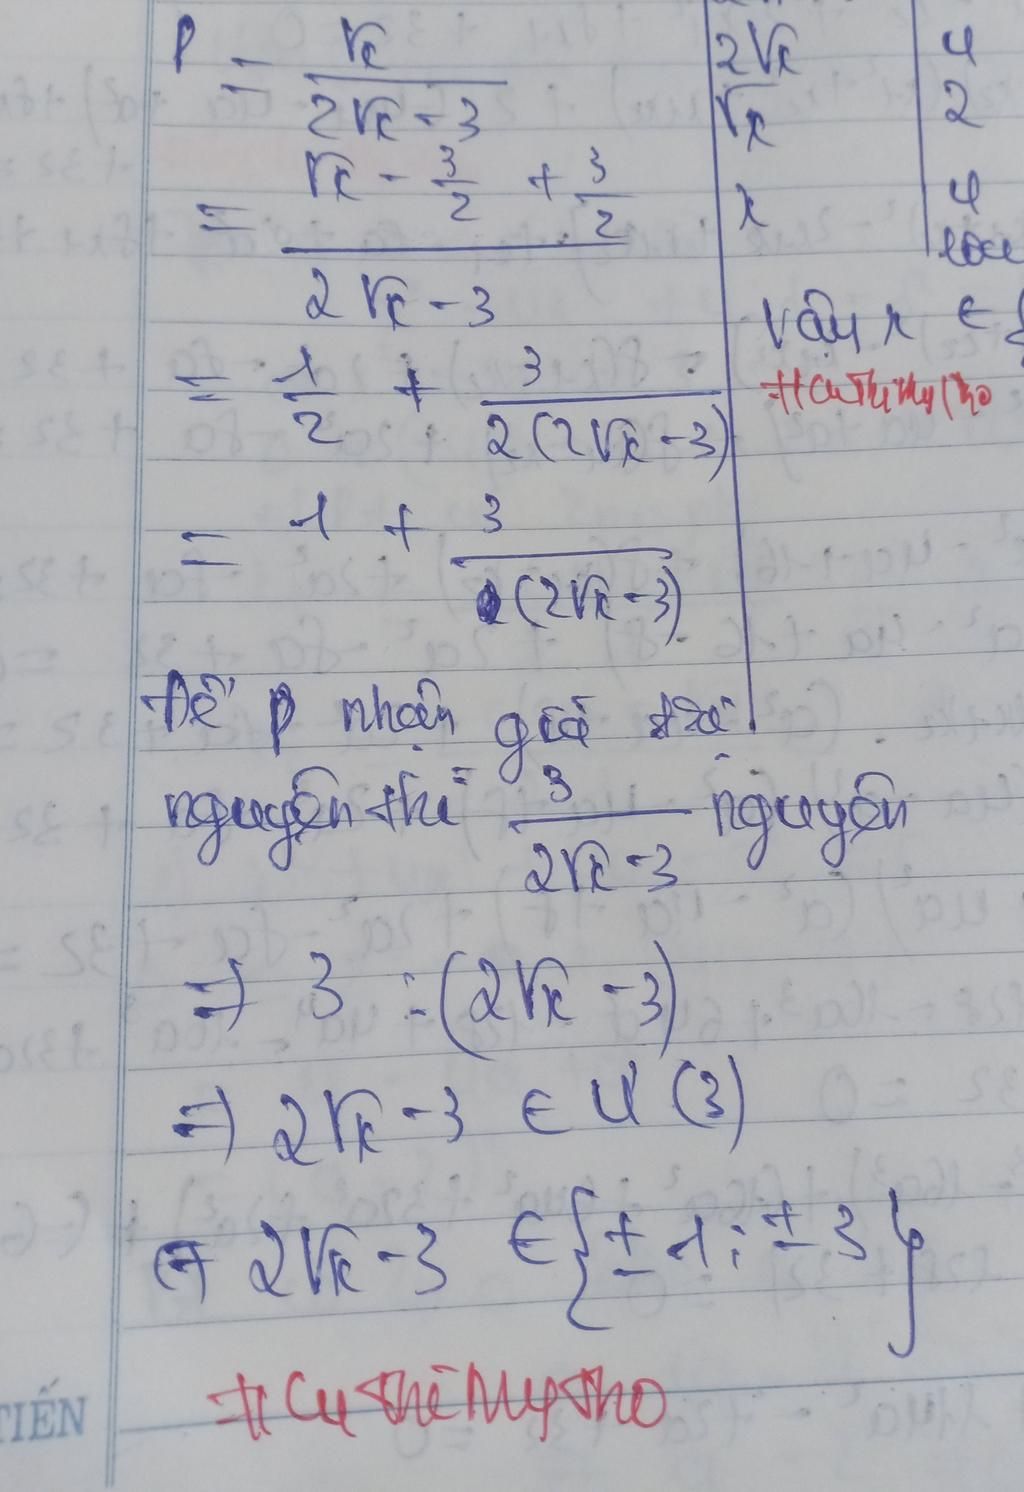 P = √x / (2√x - 3)
= (√x - 3/2 + 3/2) / (2√x - 3)
= 1/2 + 3 / 2(2√x - 3)
= 1 + 3 / (2√x - 3)
Để P nhận giá trị
nguyên thì 3 / (2√x - 3) nguyên
=> 3 ⋮ (2√x - 3)
=> 2√x - 3 ∈ Ư (3)
2√x - 3 ∈ {± 1; ± 3}
#CuThiMyTho
2√x | 4
√x | 2
x | 4
Vậy x ∈ {
#CuThiMyTho
TIẾN